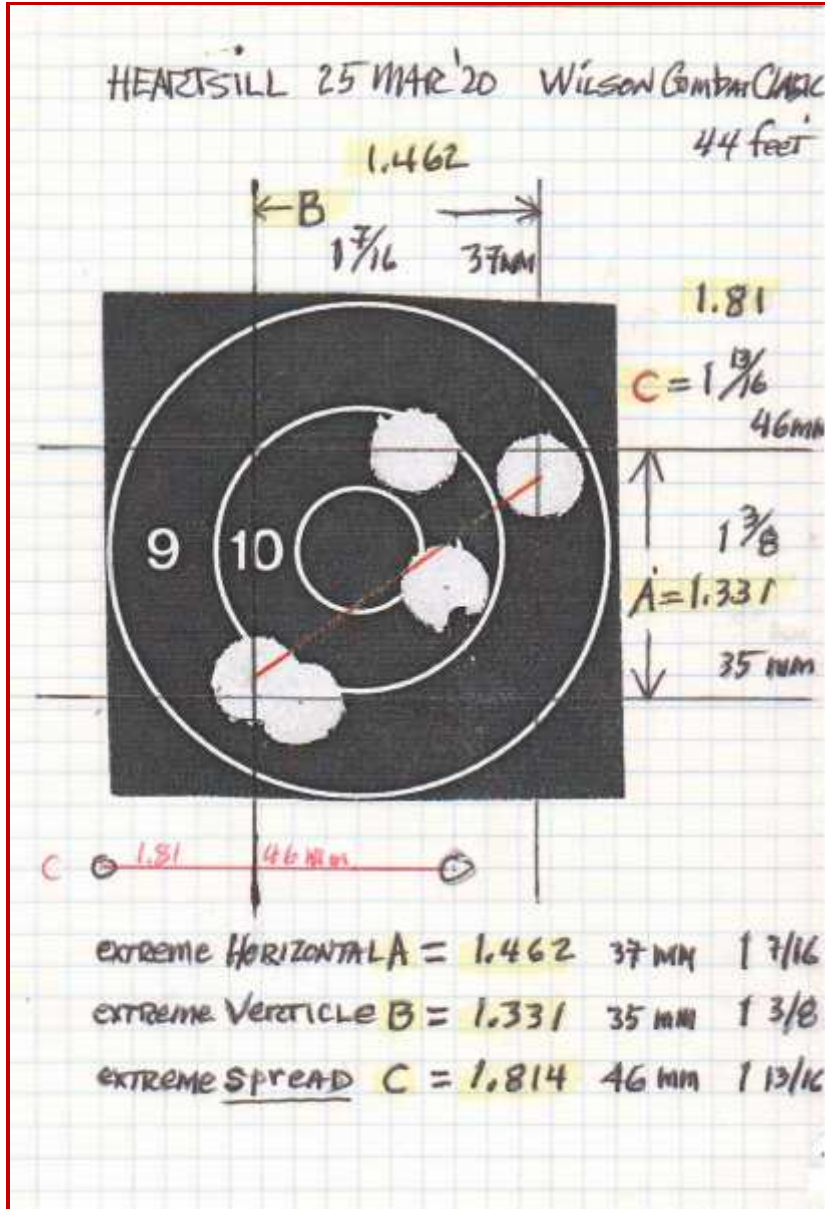 HEARTSILL 25 MAR '20 WILSON Combat CLASIC
44 feet
1.462
←B →
1 7/16 37MM
1.81
C = 1 13/16
46mm
1 3/8
A = 1.331
35 mm
9 10
C 1.81 46 mm
extreme HORIZONTAL A = 1.462 37 MM 1 7/16
extreme VERTICLE B = 1.331 35 mm 1 3/8
extreme SPREAD C = 1.814 46 mm 1 13/16